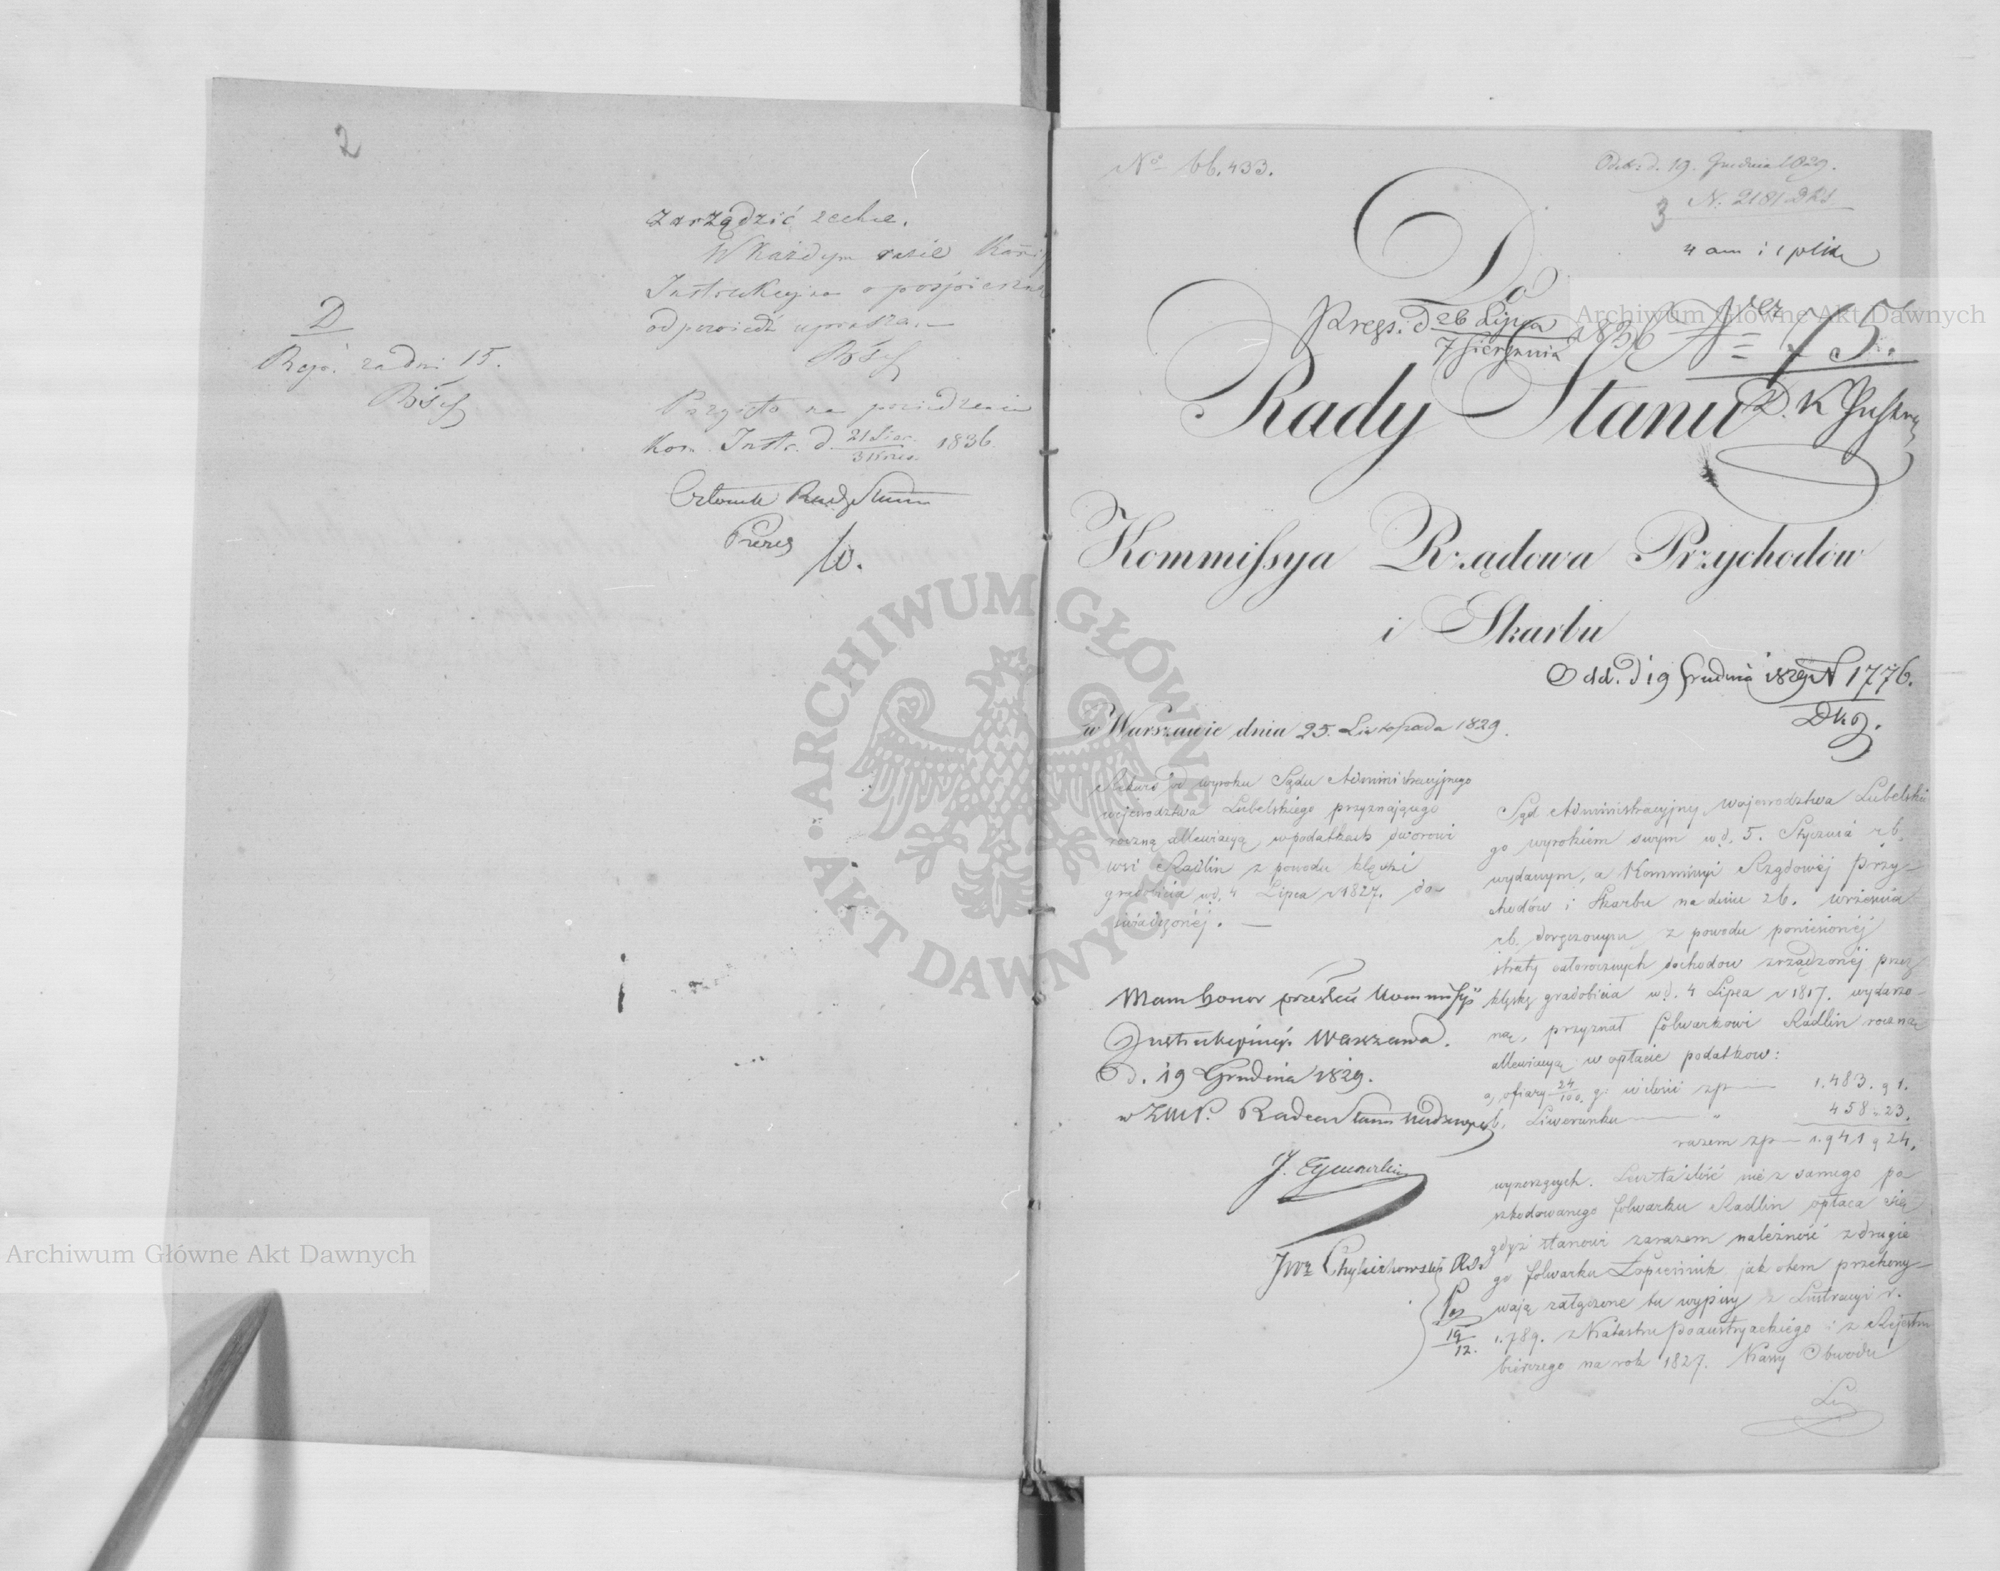 2
zarządzić zechce.
W każdym razie Kom̃issya
Instrukcyjna o pośpieszną
odpowiedź uprasza.—
D
Rep. za dni 15.
Przyjęto na posiedzeniu
Kom. Instr. d. 21 Sier. 1836.
Członek Rady Stanu
Prezes
No 66.433.
Odeb. d. 19. Grudnia 1829.
N. 2181
3
4 ann i 1 plikę
Do
Prezs. d 26 Lipca 1836 Nr 75.
7 Sierpnia
Rady Stanu
Kommissya Rządowa Przychodów
i Skarbu
Odd. d 19 Grudnia 1829 N 1776.
w Warszawie dnia 25. Listopada 1829.
Rekurs od wyroku Sądu Administracyjnego
województwa Lubelskiego przyznającego
roczną allewiacyą w podatkach dworowi
wsi Radlin z powodu klęski
gradobicia w d. 4 Lipca r 1827. do-
świadczonej. —
Mam honor przesłać Kommissyi
Instrukcyjnej. Warszawa.
d. 19 Grudnia 1829.
w Z.M.P. Radca Stanu Nadzwycz
J. Tymowski
Chyliczkowski R.S.
19
12.
Sąd Administracyjny województwa Lubelskie
go wyrokiem swym w d. 5. Stycznia r b.
wydanym, a Kommissyi Rządowej Przy-
chodów i Skarbu na dniu 26. września
r b. doręczonym z powodu poniesionej
straty całorocznych dochodów zrządzonej przez
klęskę gradobicia w d. 4 Lipca r 1817. wydarzo-
ną, przyznał folwarkowi Radlin roczną
allewiacyą w opłacie podatków:
a, ofiary 24/100 g: w ilości zp — 1.483. g 1.
b, Liwerunku — " 458 - 23.
razem zp — 1.941 g 24.
wynoszących. Lecz ta ilość nie z samego po
szkodowanego folwarku Radlin opłaca się
gdyż stanowi zarazem należność z drugie
go folwarku Łopiennik jak o tem przekony-
wają załączone tu wypisy z Lustracyi r.
1.789. z Katastru poaustryackiego i z Rejestru
bierczego na rok 1827. Kassy Obwodu
Archiwum Główne Akt Dawnych
Archiwum Główne Akt Dawnych
ARCHIWUM GŁÓWNE AKT DAWNYCH